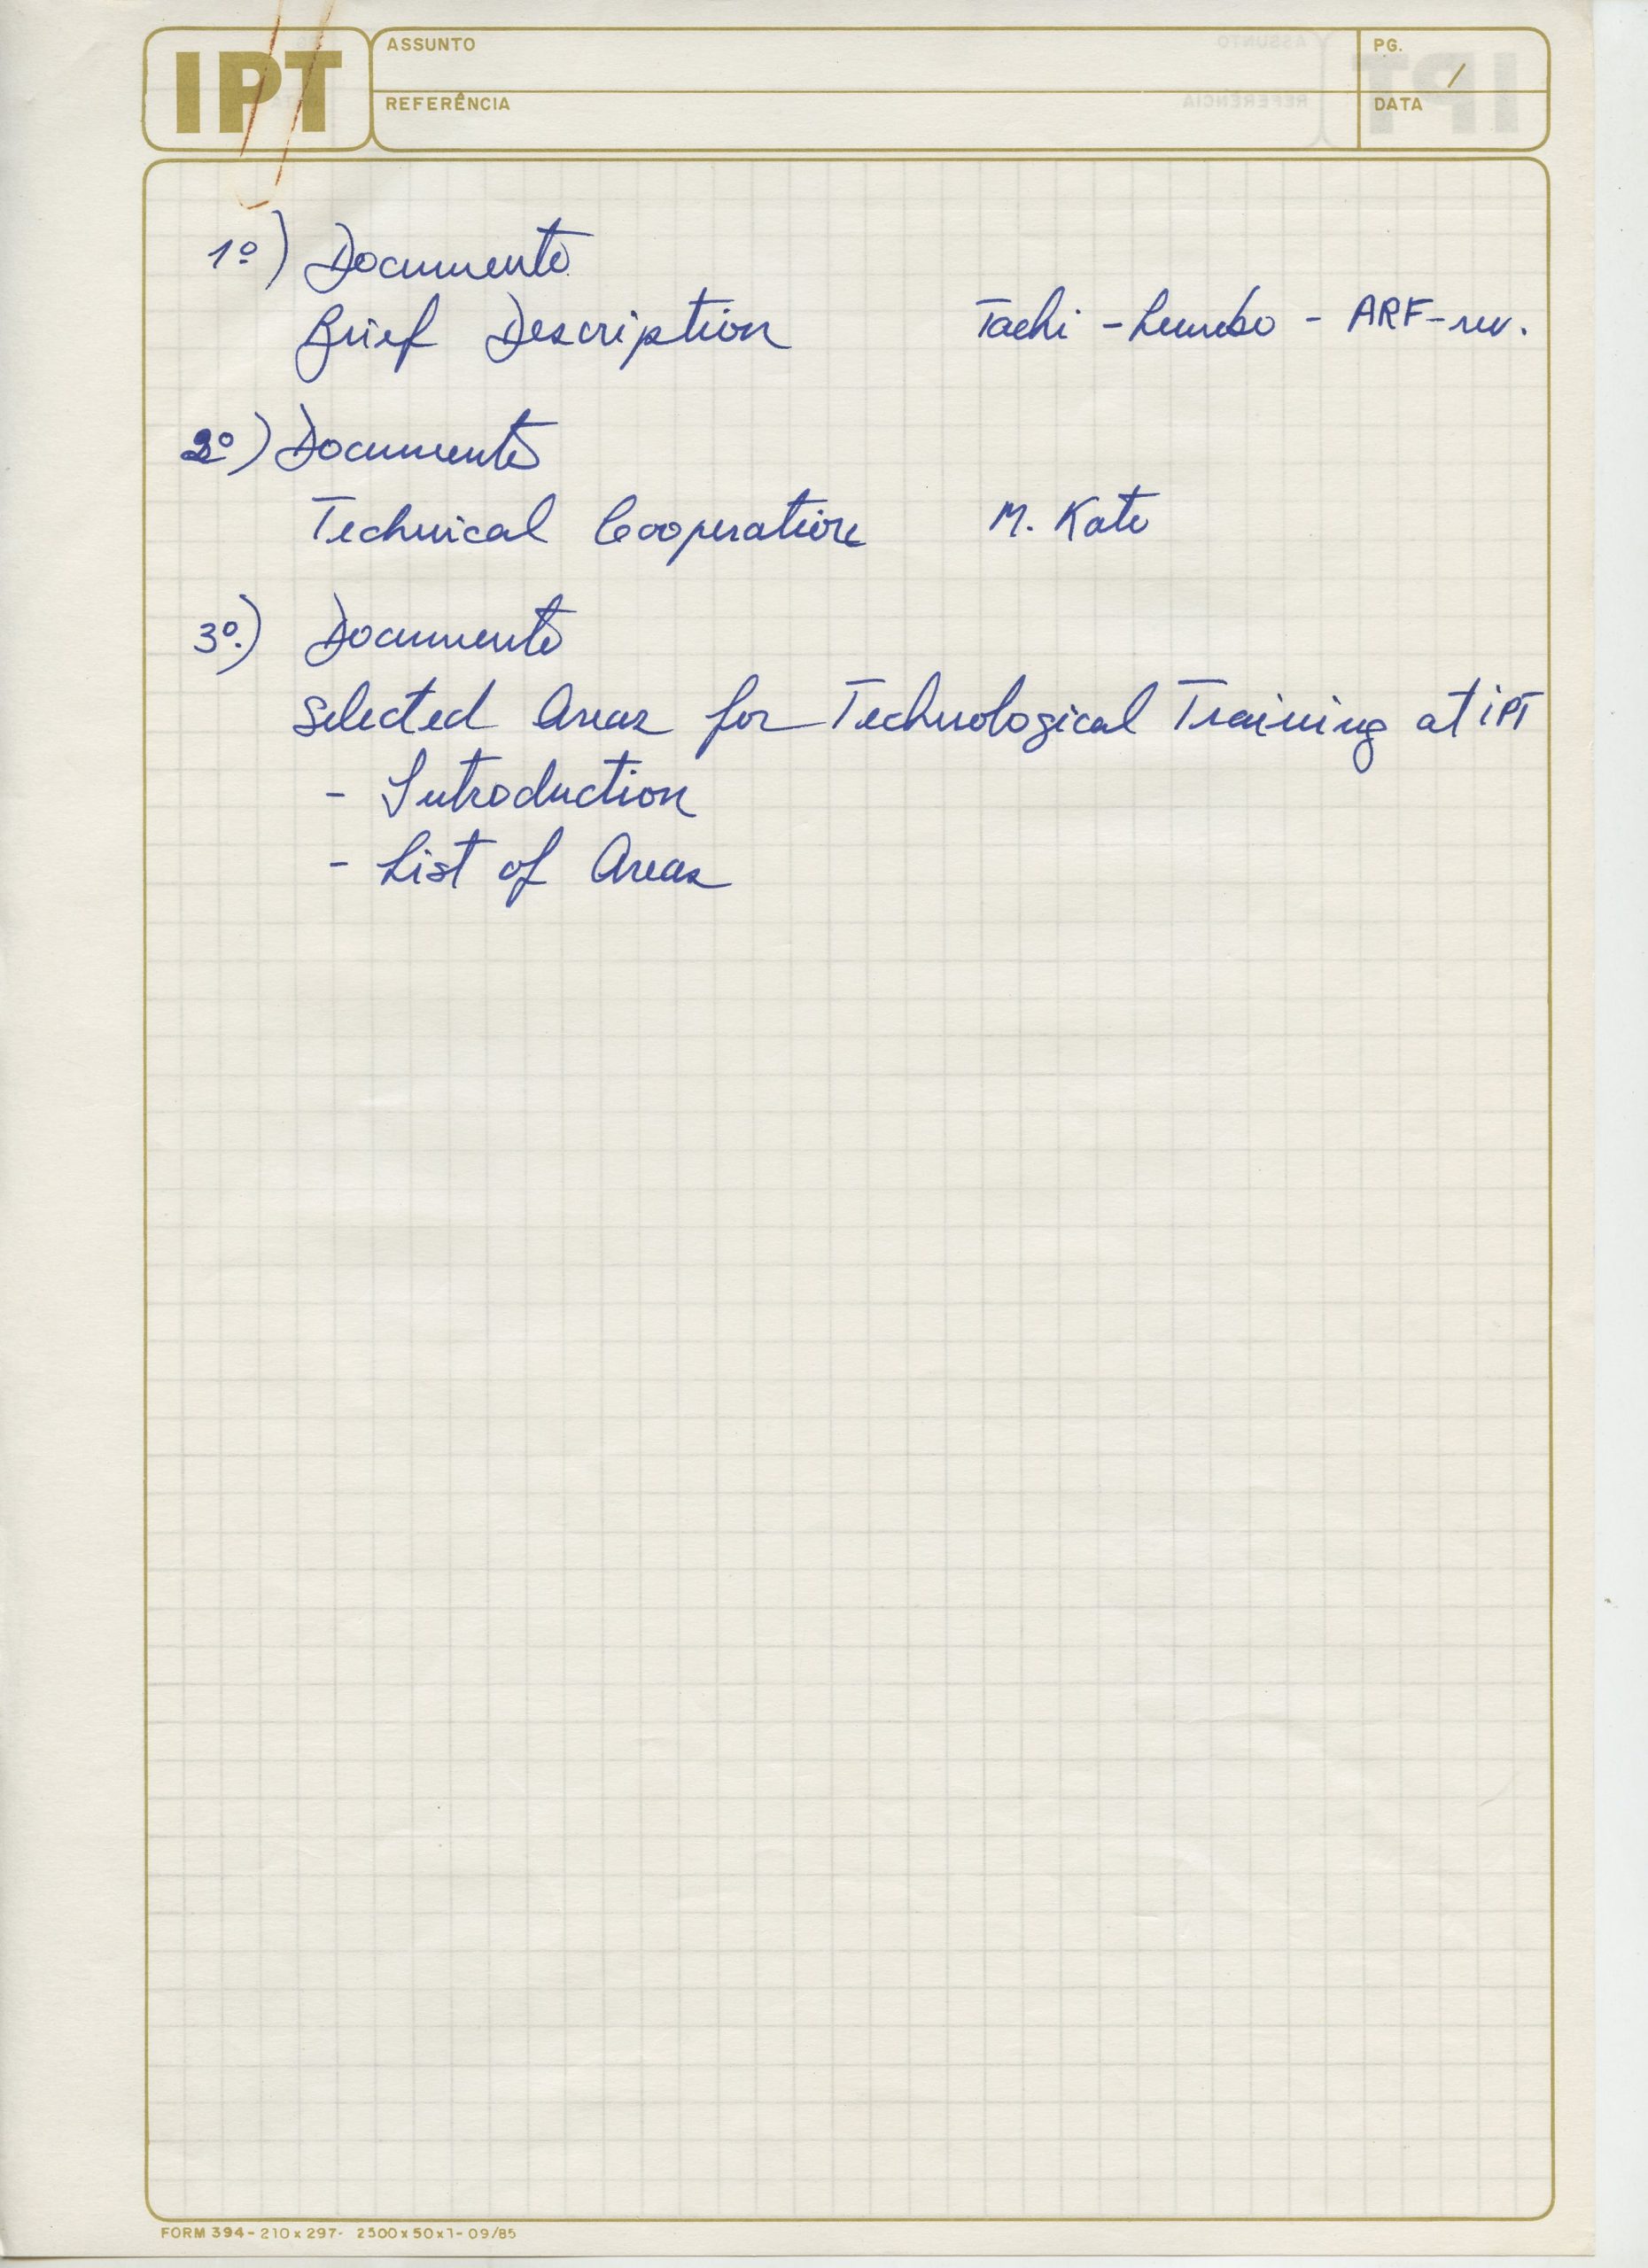 IPT
ASSUNTO
REFERÊNCIA
PG. /
DATA
1º) Documento
Brief Description Tachi - - ARF-rev.
2º) Documento
Technical Cooperation M. Kato
3º.) Documento
Selected Areas for Technological Training at iPT
- Introduction
- List of Areas
FORM 394-210x297- 2500x50x1-09/85